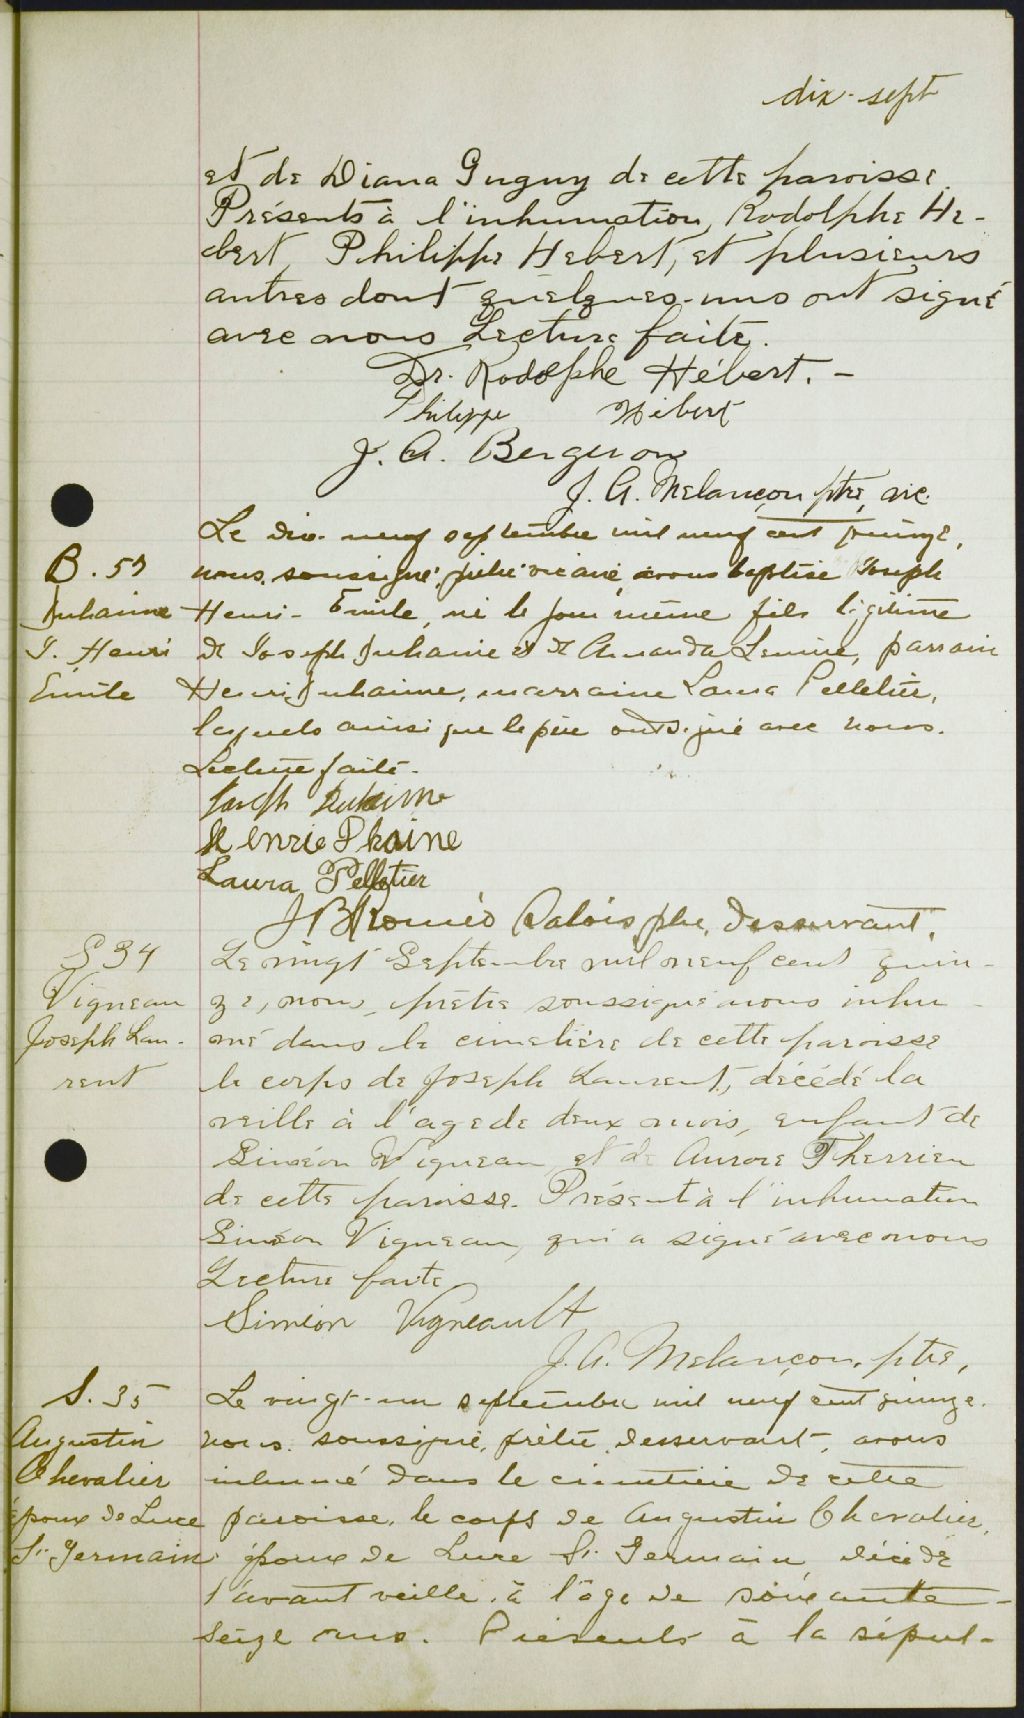 dix-sept
et de Diana Gugny de cette paroisse
Présents à l'inhumation, Rodolphe He-
bert, Philippe Hebert, et plusieurs
autres dont quelques-uns ont signé
avec nous Lecture faite.
Dr. Rodolphe Hébert. -
Philippe Hébert
J. A. Bergeron
J. A. Melançon ptre, vic.
Le dix-neuf septembre mil neuf cent quinze,
B. 59
nous, soussigné, prêtre vicaire, avons baptisé Joseph
Duhaime
Henri-Emile, né le jour même fils légitime
J. Henri
de Joseph Duhaime et de Amanda Lemire, parrain
Emile
Henri Duhaime, marraine Laura Pelletier,
lesquels ainsi que le père ont signé avec nous.
Lecture faite.
Joseph Duhaime
Henrie Dhaine
Laura Pelletier
J B Roméo Valois ptre, desservant.
S 34
Le vingt Septembre mil neuf cent quin-
Vigneau
ze, nous, prêtre soussigné avons inhu-
Joseph Lau-
mé dans le cimetière de cette paroisse
rent
le corps de Joseph Laurent, décédé la
veille à l'age de deux mois, enfant de
Siméon Vigneau, et de Aurore Therrien
de cette paroisse. Présent à l'inhumation
Siméon Vigneau, qui a signé avec nous
Lecture faite
Siméon Vigneault
J. A. Melançon, ptre,
S. 35
Le vingt-un septembre mil neuf cent quinze.
Augustin
nous soussigné, prêtre desservant, avons
Chevalier
inhumé dans le cimetière de cette
époux de Luce
paroisse, le corps de Augustin Chevalier,
St Germain
époux de Luce St Germain décédé
l'avant veille, à l'âge de soixante-
seize ans. Présents à la sépul-